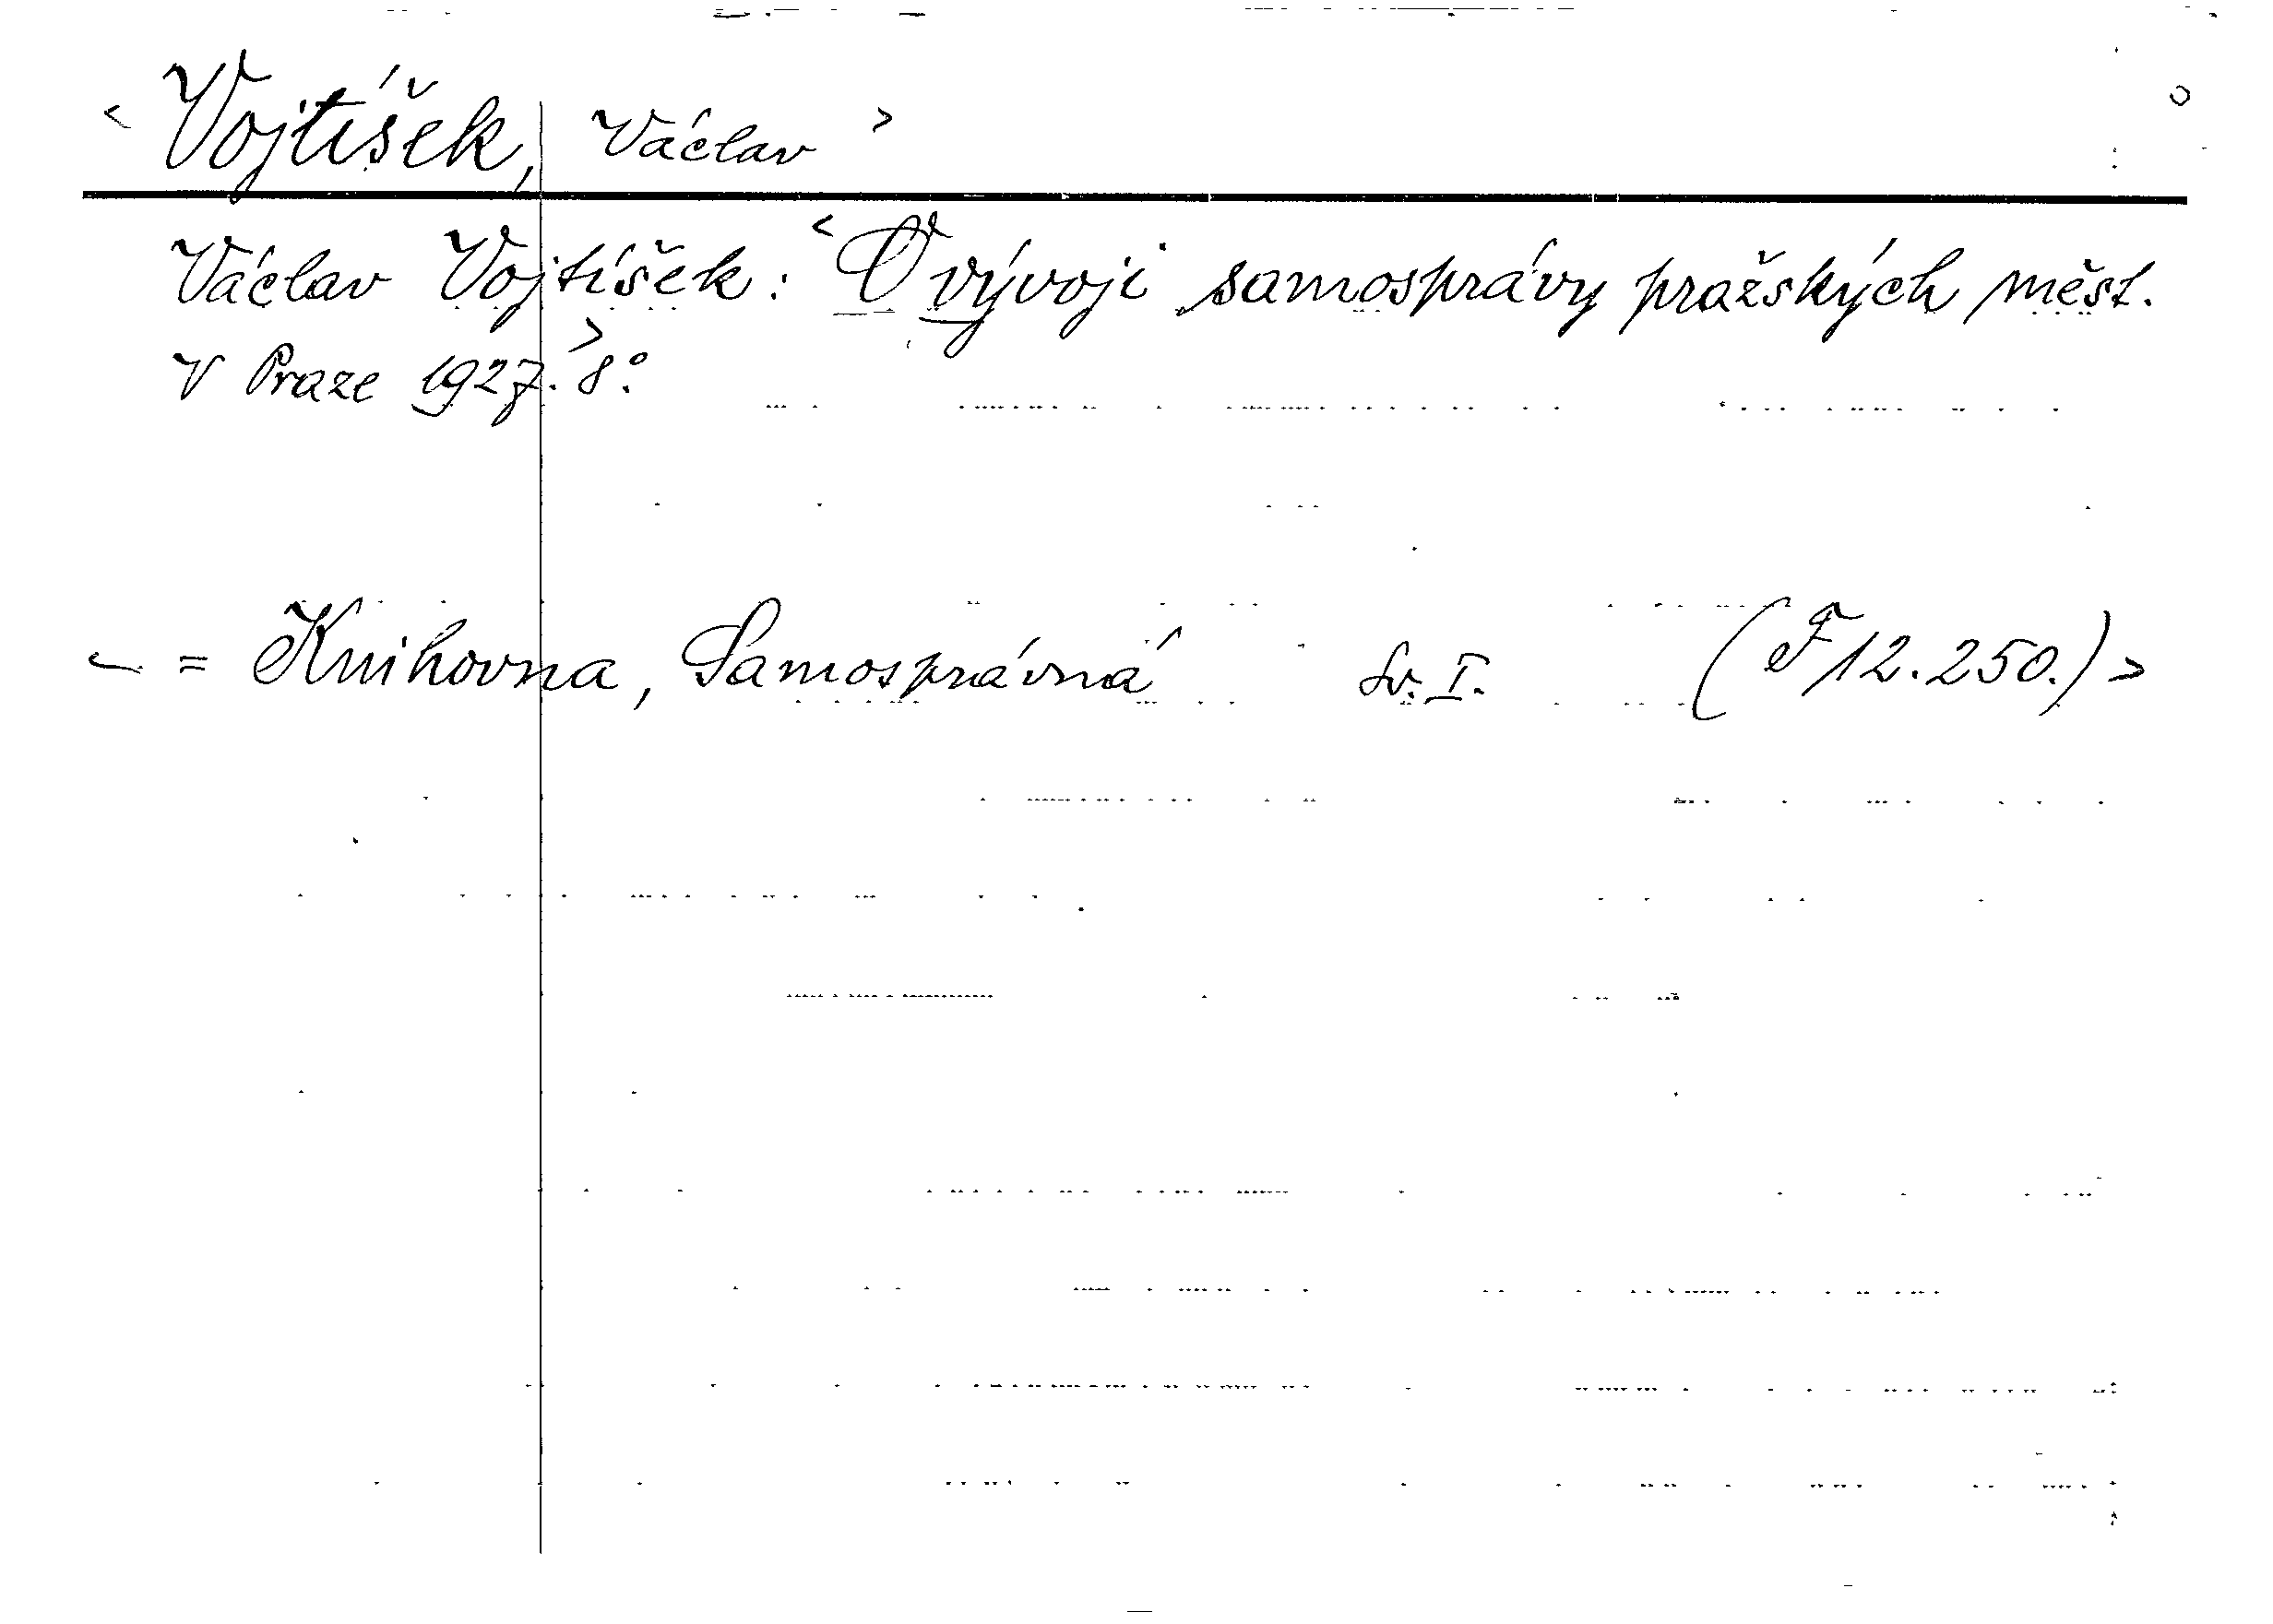 < Vojtíšek, Václav >
Václav Vojtíšek: < O vývoji samosprávy pražských měst.
V Praze 1927. > 8°.
< = Knihovna, Samosprávná Sv. I. (F 12.250.) >